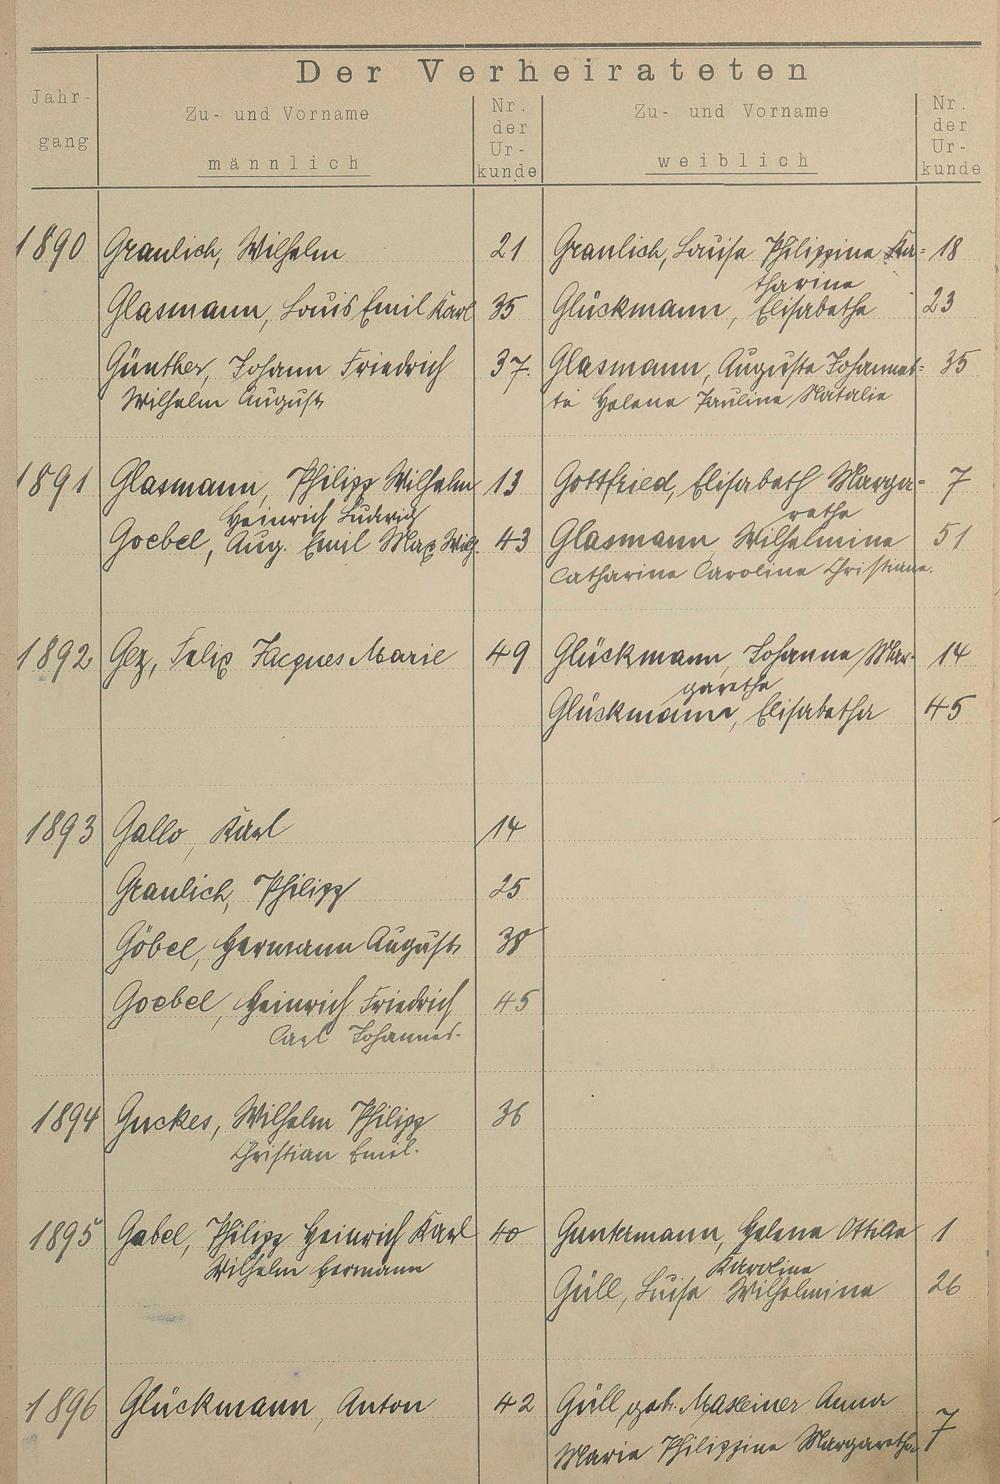 Der Verheirateten
Jahr-
gang
Zu- und Vorname
männlich
Nr.
der
Ur-
kunde
Zu- und Vorname
weiblich
Nr.
der
Ur-
kunde
1890 Graulich, Wilhelm 21 Graulich, Louise Philippine Ka- 18
tharina
Glasmann, Louis Emil Karl 35 Glückmann, Elisabetha 23
Günther, Johann Friedrich 37. Glasmann, Augusta Johannet- 35
Wilhelm August te Helena Paulina Natalie
1891 Glasmann, Philipp Wilhelm 13 Gottfried, Elisabeth Marga- 7
Heinrich Ludwig retha
Goebel, Aug. Emil Max Wilh. 43 Glasmann Wilhelmine 51
Catharina Carolina Christiane.
1892 Gez, Felix Jacques Marie 49 Glückmann, Johanna Mar- 14
garetha
Glückmann, Elisabetha 45
1893 Gallo, Karl 14
Graulich, Philipp 25
Göbel, Hermann August 38
Goebel, Heinrich Friedrich 45
Carl Johannes.
1894 Guckes, Wilhelm Philipp 36
Christian Emil.
1895 Gabel, Philipp Heinrich Karl 40 Guntermann, Helena Ottilie 1
Wilhelm Hermann Karolina
Güll, Luise Wilhelmina 26
1896 Glückmann, Anton 42 Güll geb. Anna
Maria Philippina Margaretha 7